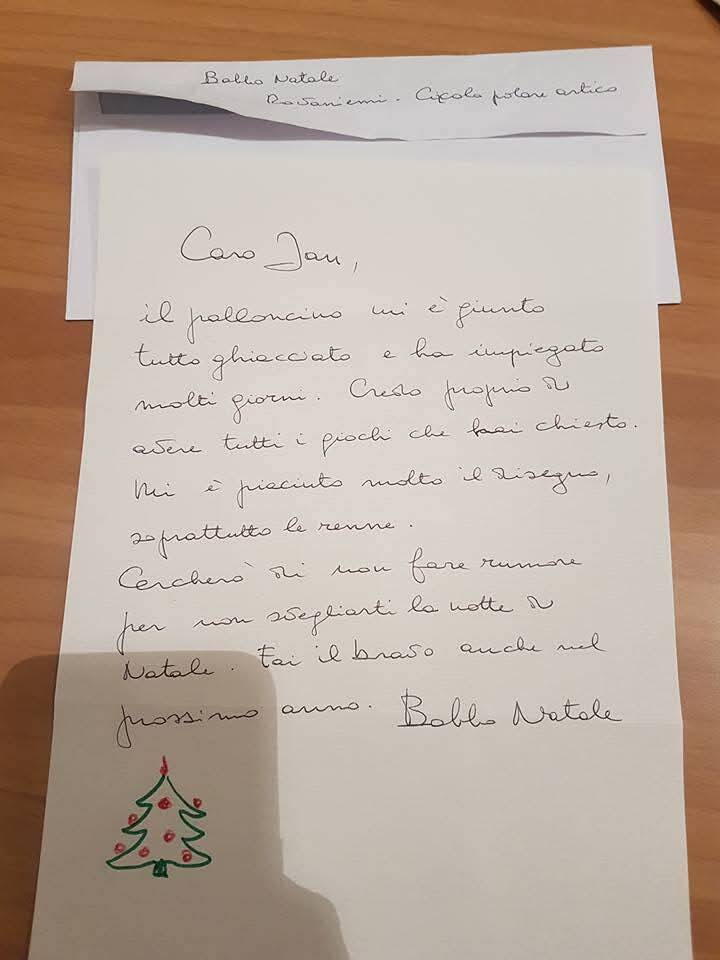 Babbo Natale
Rovaniemi. Circolo polare artico
Caro Jan,
il palloncino mi è giunto
tutto ghiacciato e ha impiegato
molti giorni. Credo proprio di
avere tutti i giochi che hai chiesto.
Mi è piaciuto molto il disegno,
soprattutto le renne.
Cercherò di non fare rumore
per non svegliarti la notte di
Natale. Fai il bravo anche nel
prossimo anno. Babbo Natale